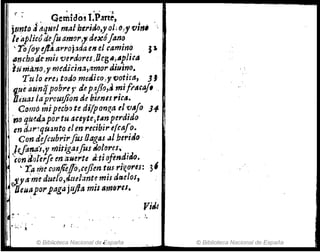 Gemidos I. Parte,
junto à aquel mal herido, y ol. o, y vino
le aplicò de su amor, y dexò sano
To soy esta arrojada en el camino 32
ancho de mis verdores, llega, aplica
tu mano, y medicina, amor diuino.
Tu lo eres todo medico, y votica, 33
que aunq̃ pobre y de passo, à mi fracaso
lleuas la prouision de bienes rica.
Como mi pecho te disponga el vaso 34
no queda por tu aceyte, tan perdido
en dar quanto el en recibir escaso.
Con descubrir sus llagas al herido
le sanas, y mitigas sus dolores,
con dolerse en auerte à ti ofendido.
Ya me confiesso, cessen tus rigores: 36
y ya me duelo, duelante mis duelos,
lleua por paga justa mis amores,
Vide
© Biblioteca Nacional de España
© Biblioteca Nacional de España